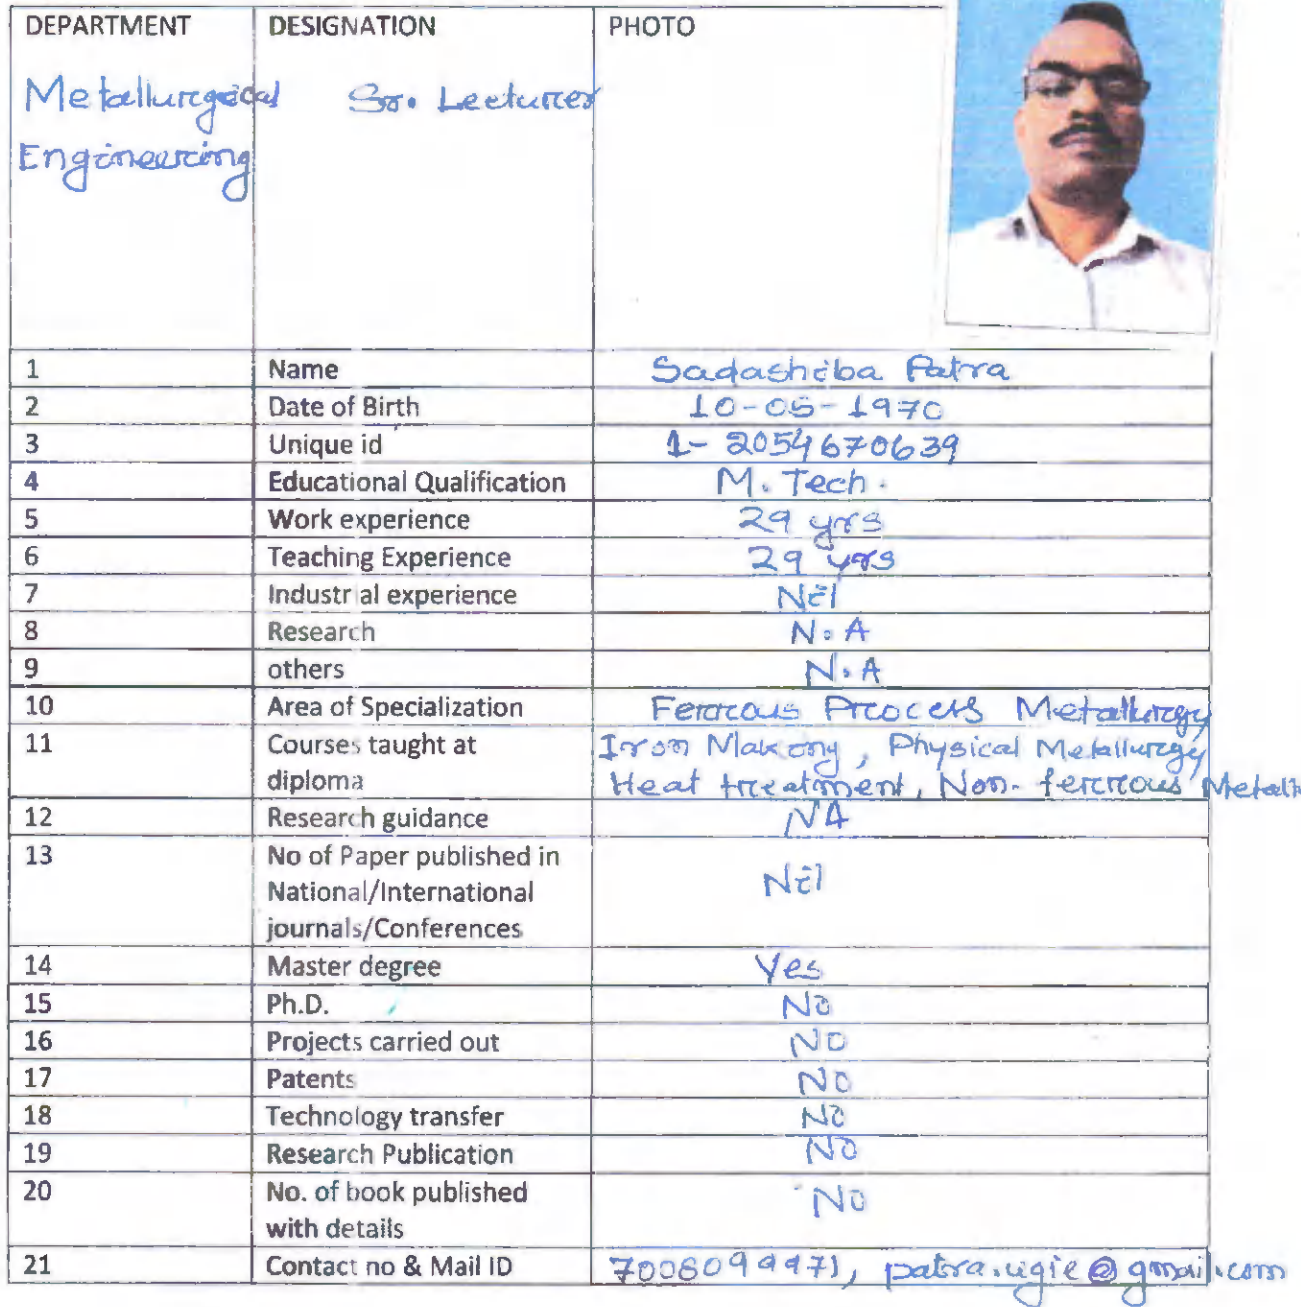 DEPARTMENT DESIGNATION PHOTO
Metallurgical Sr. Lecturer
Engineering
1 Name Sadashiba Patra
2 Date of Birth 10-05-1970
3 Unique id 1-2054670639
4 Educational Qualification M.Tech.
5 Work experience 29 yrs
6 Teaching Experience 29 yrs
7 Industrial experience Nil
8 Research N.A
9 others N.A
10 Area of Specialization Ferrous Process Metallurgy
11 Courses taught at Iron Making, Physical Metallurgy
diploma Heat treatment, Non-ferrous
12 Research guidance NA
13 No of Paper published in
National/International Nil
journals/Conferences
14 Master degree Yes
15 Ph.D. No
16 Projects carried out NO
17 Patents NO
18 Technology transfer NO
19 Research Publication NO
20 No. of book published No
with details
21 Contact no & Mail ID patra.ugie@gmail.com